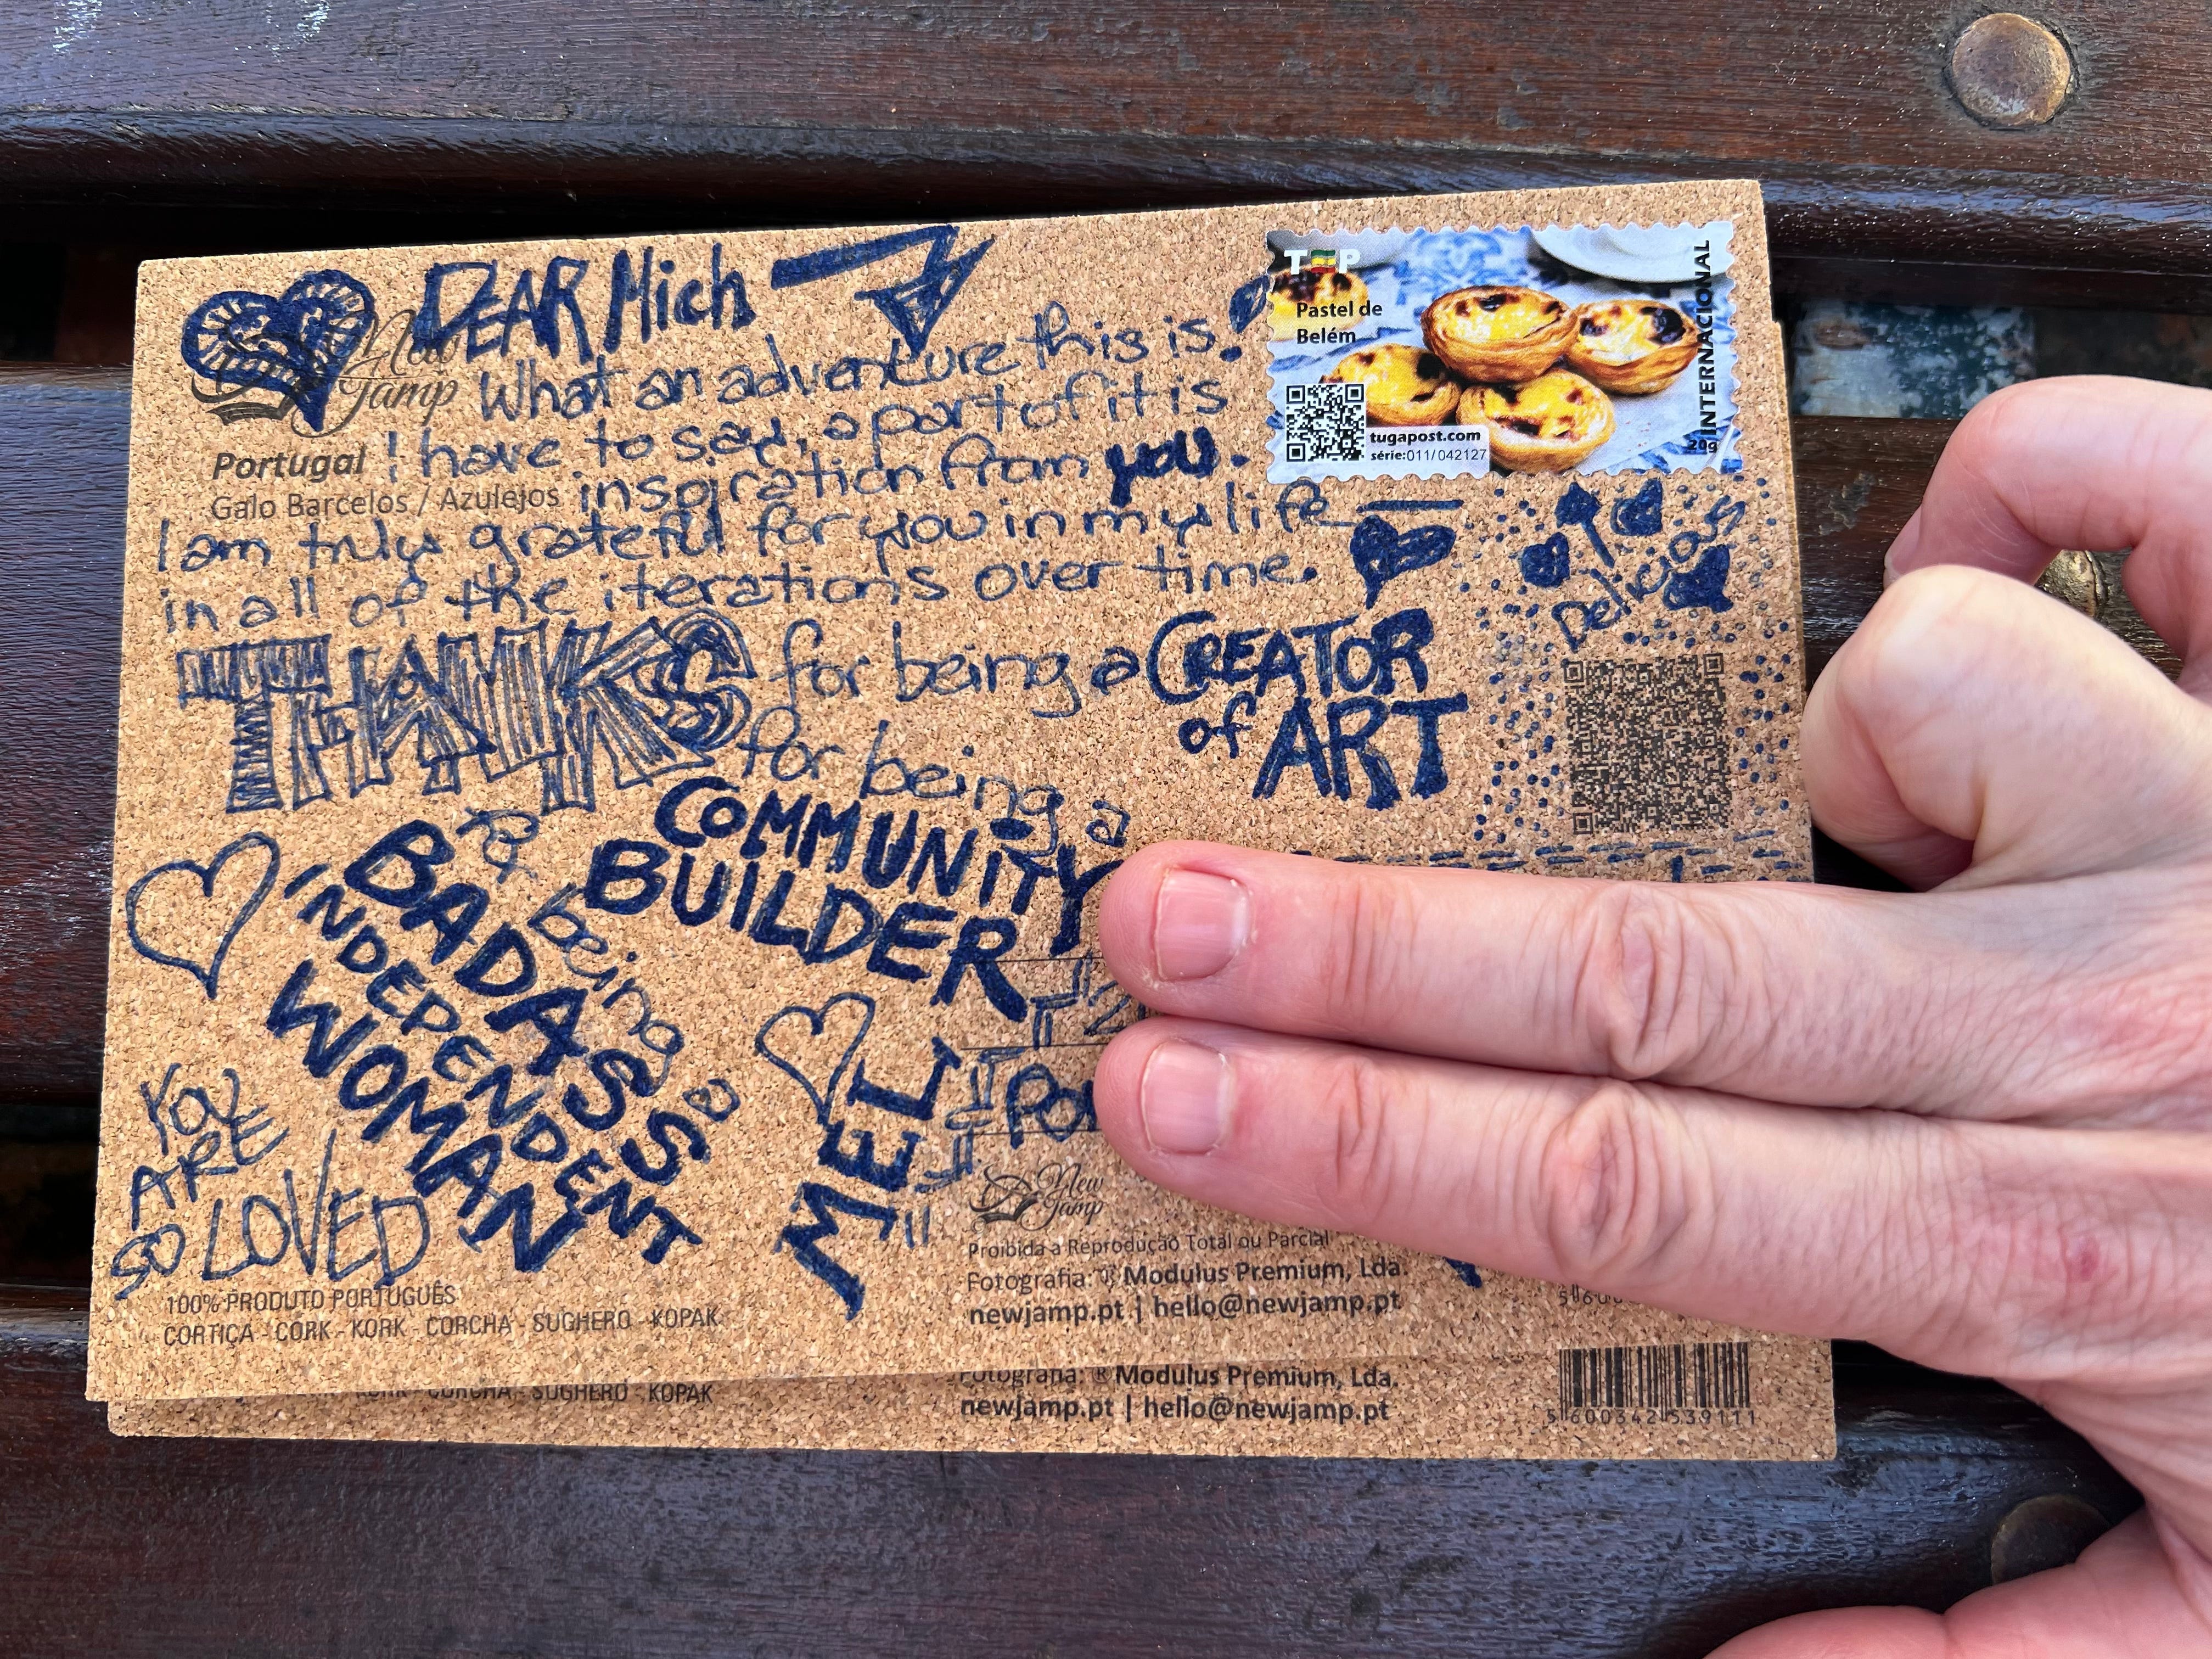 DEAR Mich
What an adventure this is.
I have to say, a part of it is
inspiration from you.
I am truly grateful for you in my life
in all of the iterations over time.
THANKS for being a CREATOR
of ART
for being a
COMMUNITY
BUILDER
being
BADASS
INDEPENDENT
WOMAN
YOU
ARE
SO LOVED
MEL
New
Jamp
Portugal
Galo Barcelos / Azulejos
TP
Pastel de
Belém
INTERNACIONAL
20g
tugapost.com
série:011/042127
Delicious
New
Jamp
Proibida a Reprodução Total ou Parcial
Fotografia: ® Modulus Premium, Lda.
newjamp.pt | hello@newjamp.pt
100% PRODUTO PORTUGUÊS
CORTIÇA - CORK - KORK - CORCHA - SUGHERO - KOPAK
KORK - CORCHA - SUGHERO - KOPAK
Fotografia: ® Modulus Premium, Lda.
newjamp.pt | hello@newjamp.pt
5 600342 539111